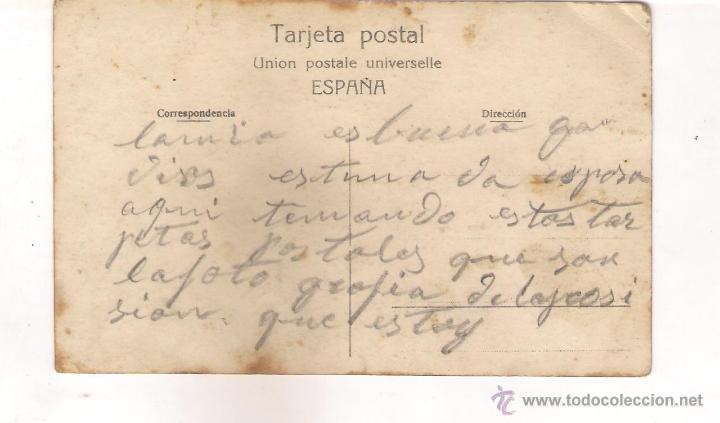 Tarjeta postal
Union postale universelle
ESPAÑA
Correspondencia
Dirección
lamia es buena ga
dios estima da esposa
aqui temando estas tar
petas postales que son
la foto grafia de laposi
sion. que estoy
todocoleccion
www.todocoleccion.net